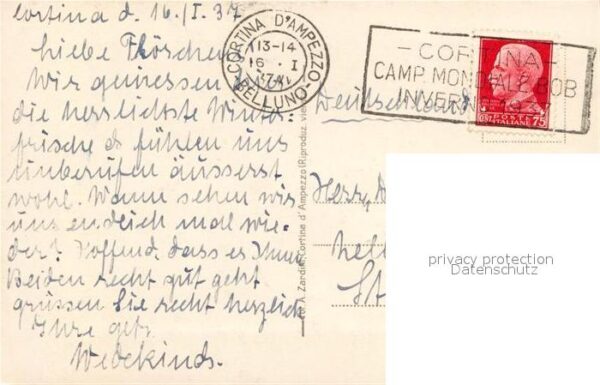 Cortina d. 16./I. 37
Liebe Flöschen
Wir geniessen
die herrlichste Winter-
frische & fühlen uns
unberufen äusserst
wohl. Wann sehen wir
uns endlich mal wie-
der? Hoffend, dass es Ihnen
Beiden recht gut geht
grüssen Sie recht herzlich
Ihre getr.
Wedekinds.
CORTINA D'AMPEZZO
13-14
16 . I
BELLUNO
- CORTINA -
CAMP. MONDIALE BOB
INVERNO 1937
POSTE
ITALIANE
75
Deutschland
Herr
Ed. A. Zardini, Cortina d'Ampezzo (Riproduz. vie
privacy protection
Datenschutz